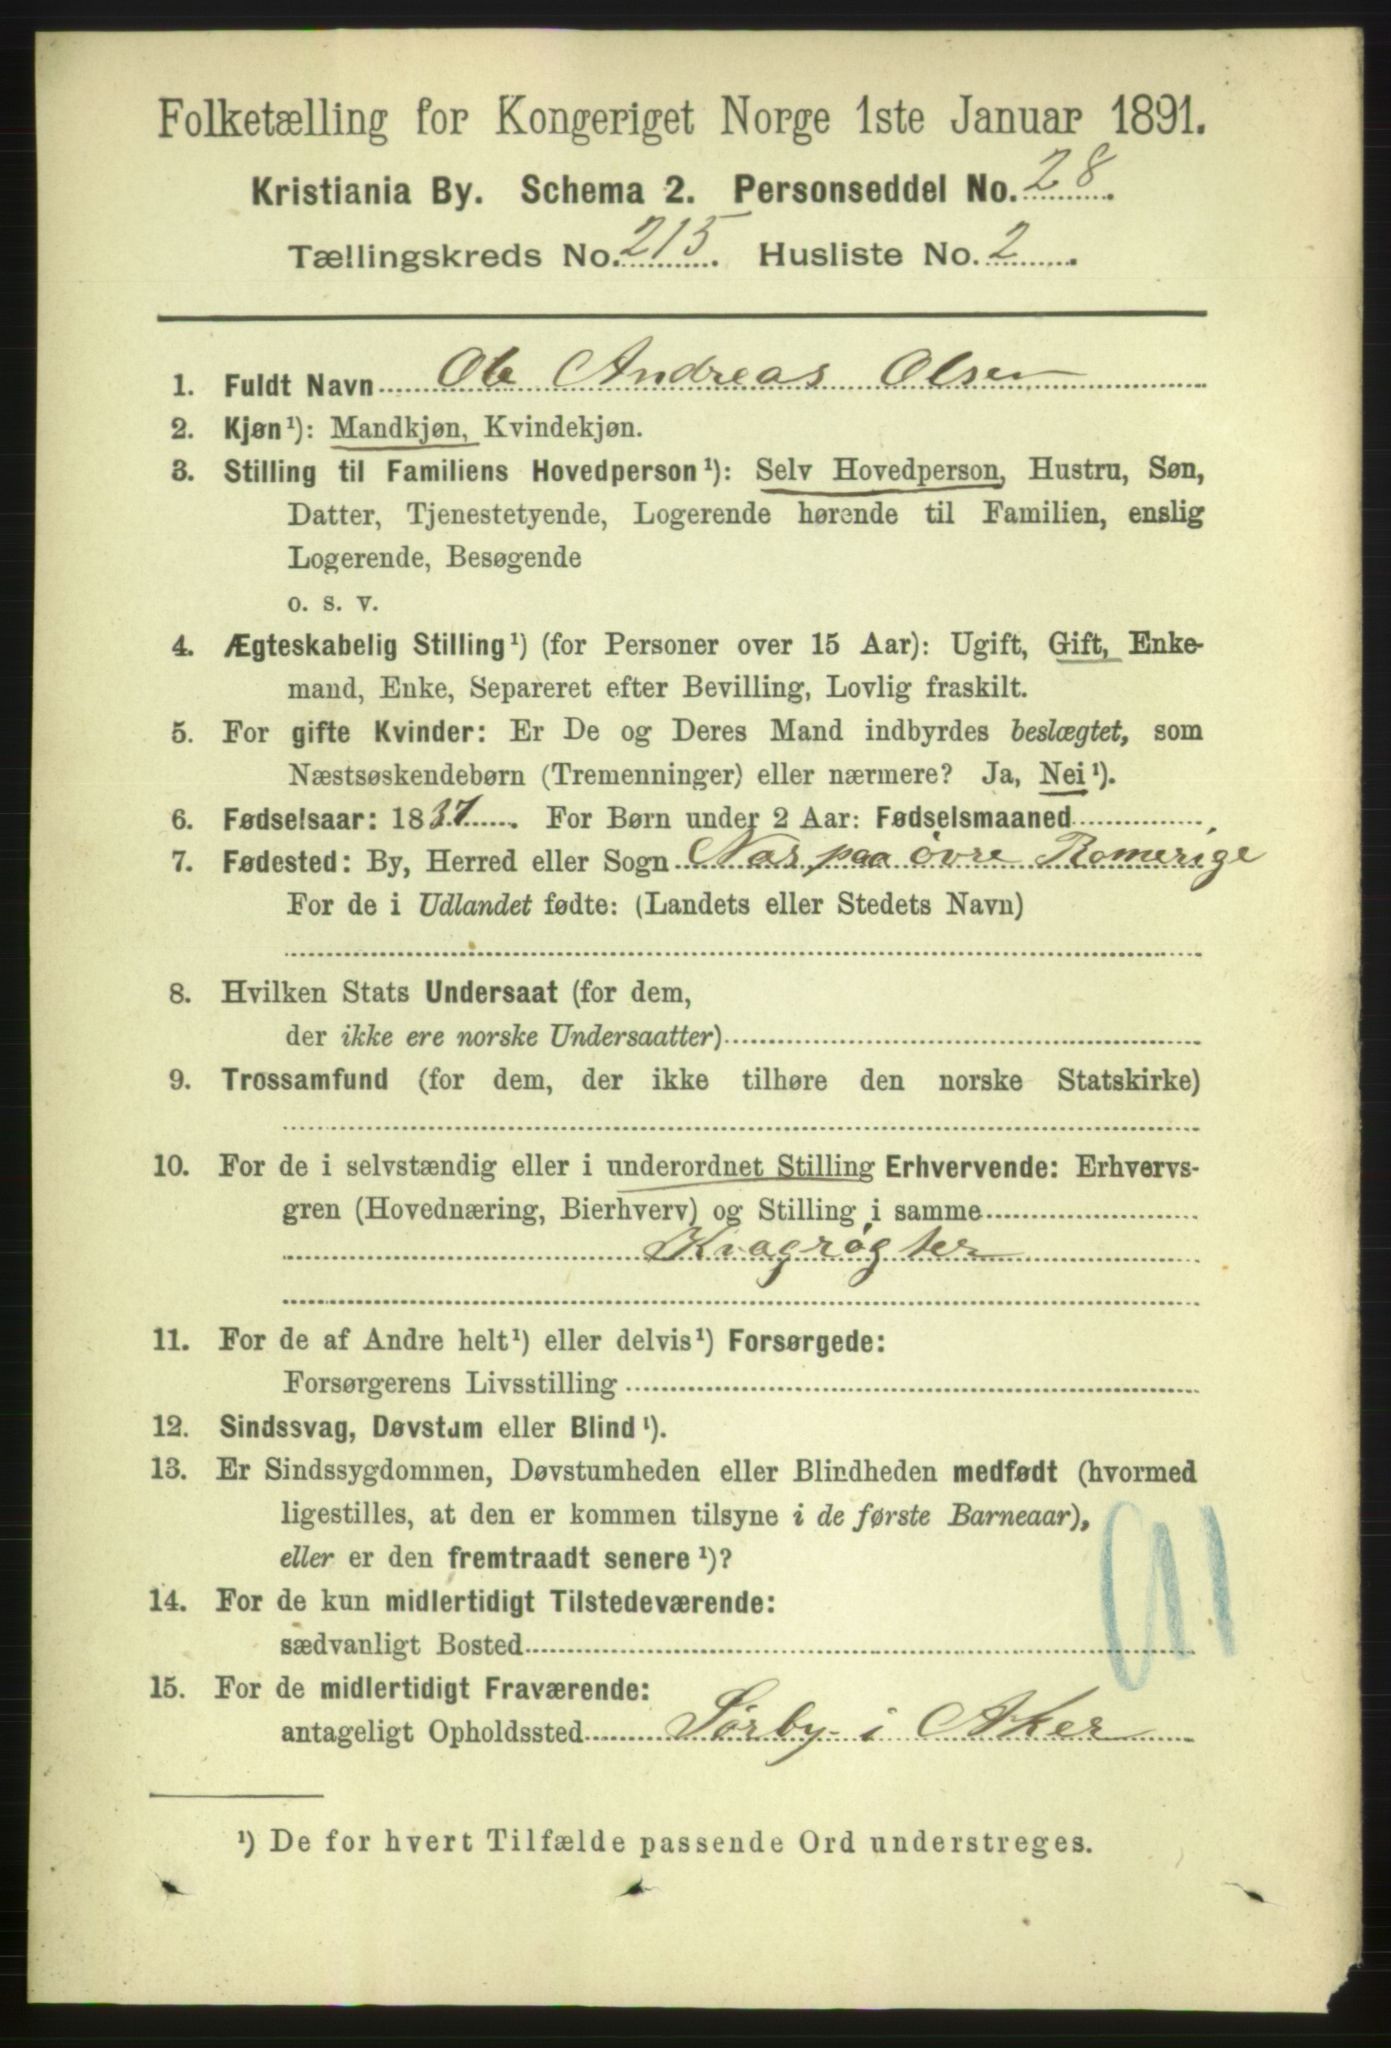 Folketælling for Kongeriget Norge 1ste Januar 1891.
Kristiania By. Schema 2. Personseddel No. 28.
Tællingskreds No. 215. Husliste No. 2.
1. Fuldt Navn Ole Andreas Olsen
2. Kjøn¹): Mandkjøn, Kvindekjøn.
3. Stilling til Familiens Hovedperson¹): Selv Hovedperson, Hustru, Søn,
Datter, Tjenestetyende, Logerende hørende til Familien, enslig
Logerende, Besøgende
o. s. v.
4. Ægteskabelig Stilling¹) (for Personer over 15 Aar): Ugift, Gift, Enke-
mand, Enke, Separeret efter Bevilling, Lovlig fraskilt.
5. For gifte Kvinder: Er De og Deres Mand indbyrdes beslægtet, som
Næstsøskendebørn (Tremenninger) eller nærmere? Ja, Nei¹).
6. Fødselsaar: 1837. For Børn under 2 Aar: Fødselsmaaned
7. Fødested: By, Herred eller Sogn Næs paa øvre Romerige
For de i Udlandet fødte: (Landets eller Stedets Navn)
8. Hvilken Stats Undersaat (for dem,
der ikke ere norske Undersaatter)
9. Trossamfund (for dem, der ikke tilhøre den norske Statskirke)
10. For de i selvstændig eller i underordnet Stilling Erhvervende: Erhvervs-
gren (Hovednæring, Bierhverv) og Stilling i samme
Kvægrøgter
11. For de af Andre helt¹) eller delvis¹) Forsørgede:
Forsørgerens Livsstilling
12. Sindssvag, Døvstum eller Blind¹).
13. Er Sindssygdommen, Døvstumheden eller Blindheden medfødt (hvormed
ligestilles, at den er kommen tilsyne i de første Barneaar),
eller er den fremtraadt senere¹)?
14. For de kun midlertidigt Tilstedeværende:
sædvanligt Bosted
15. For de midlertidigt Fraværende:
antageligt Opholdssted Sørby i Aker
¹) De for hvert Tilfælde passende Ord understreges.